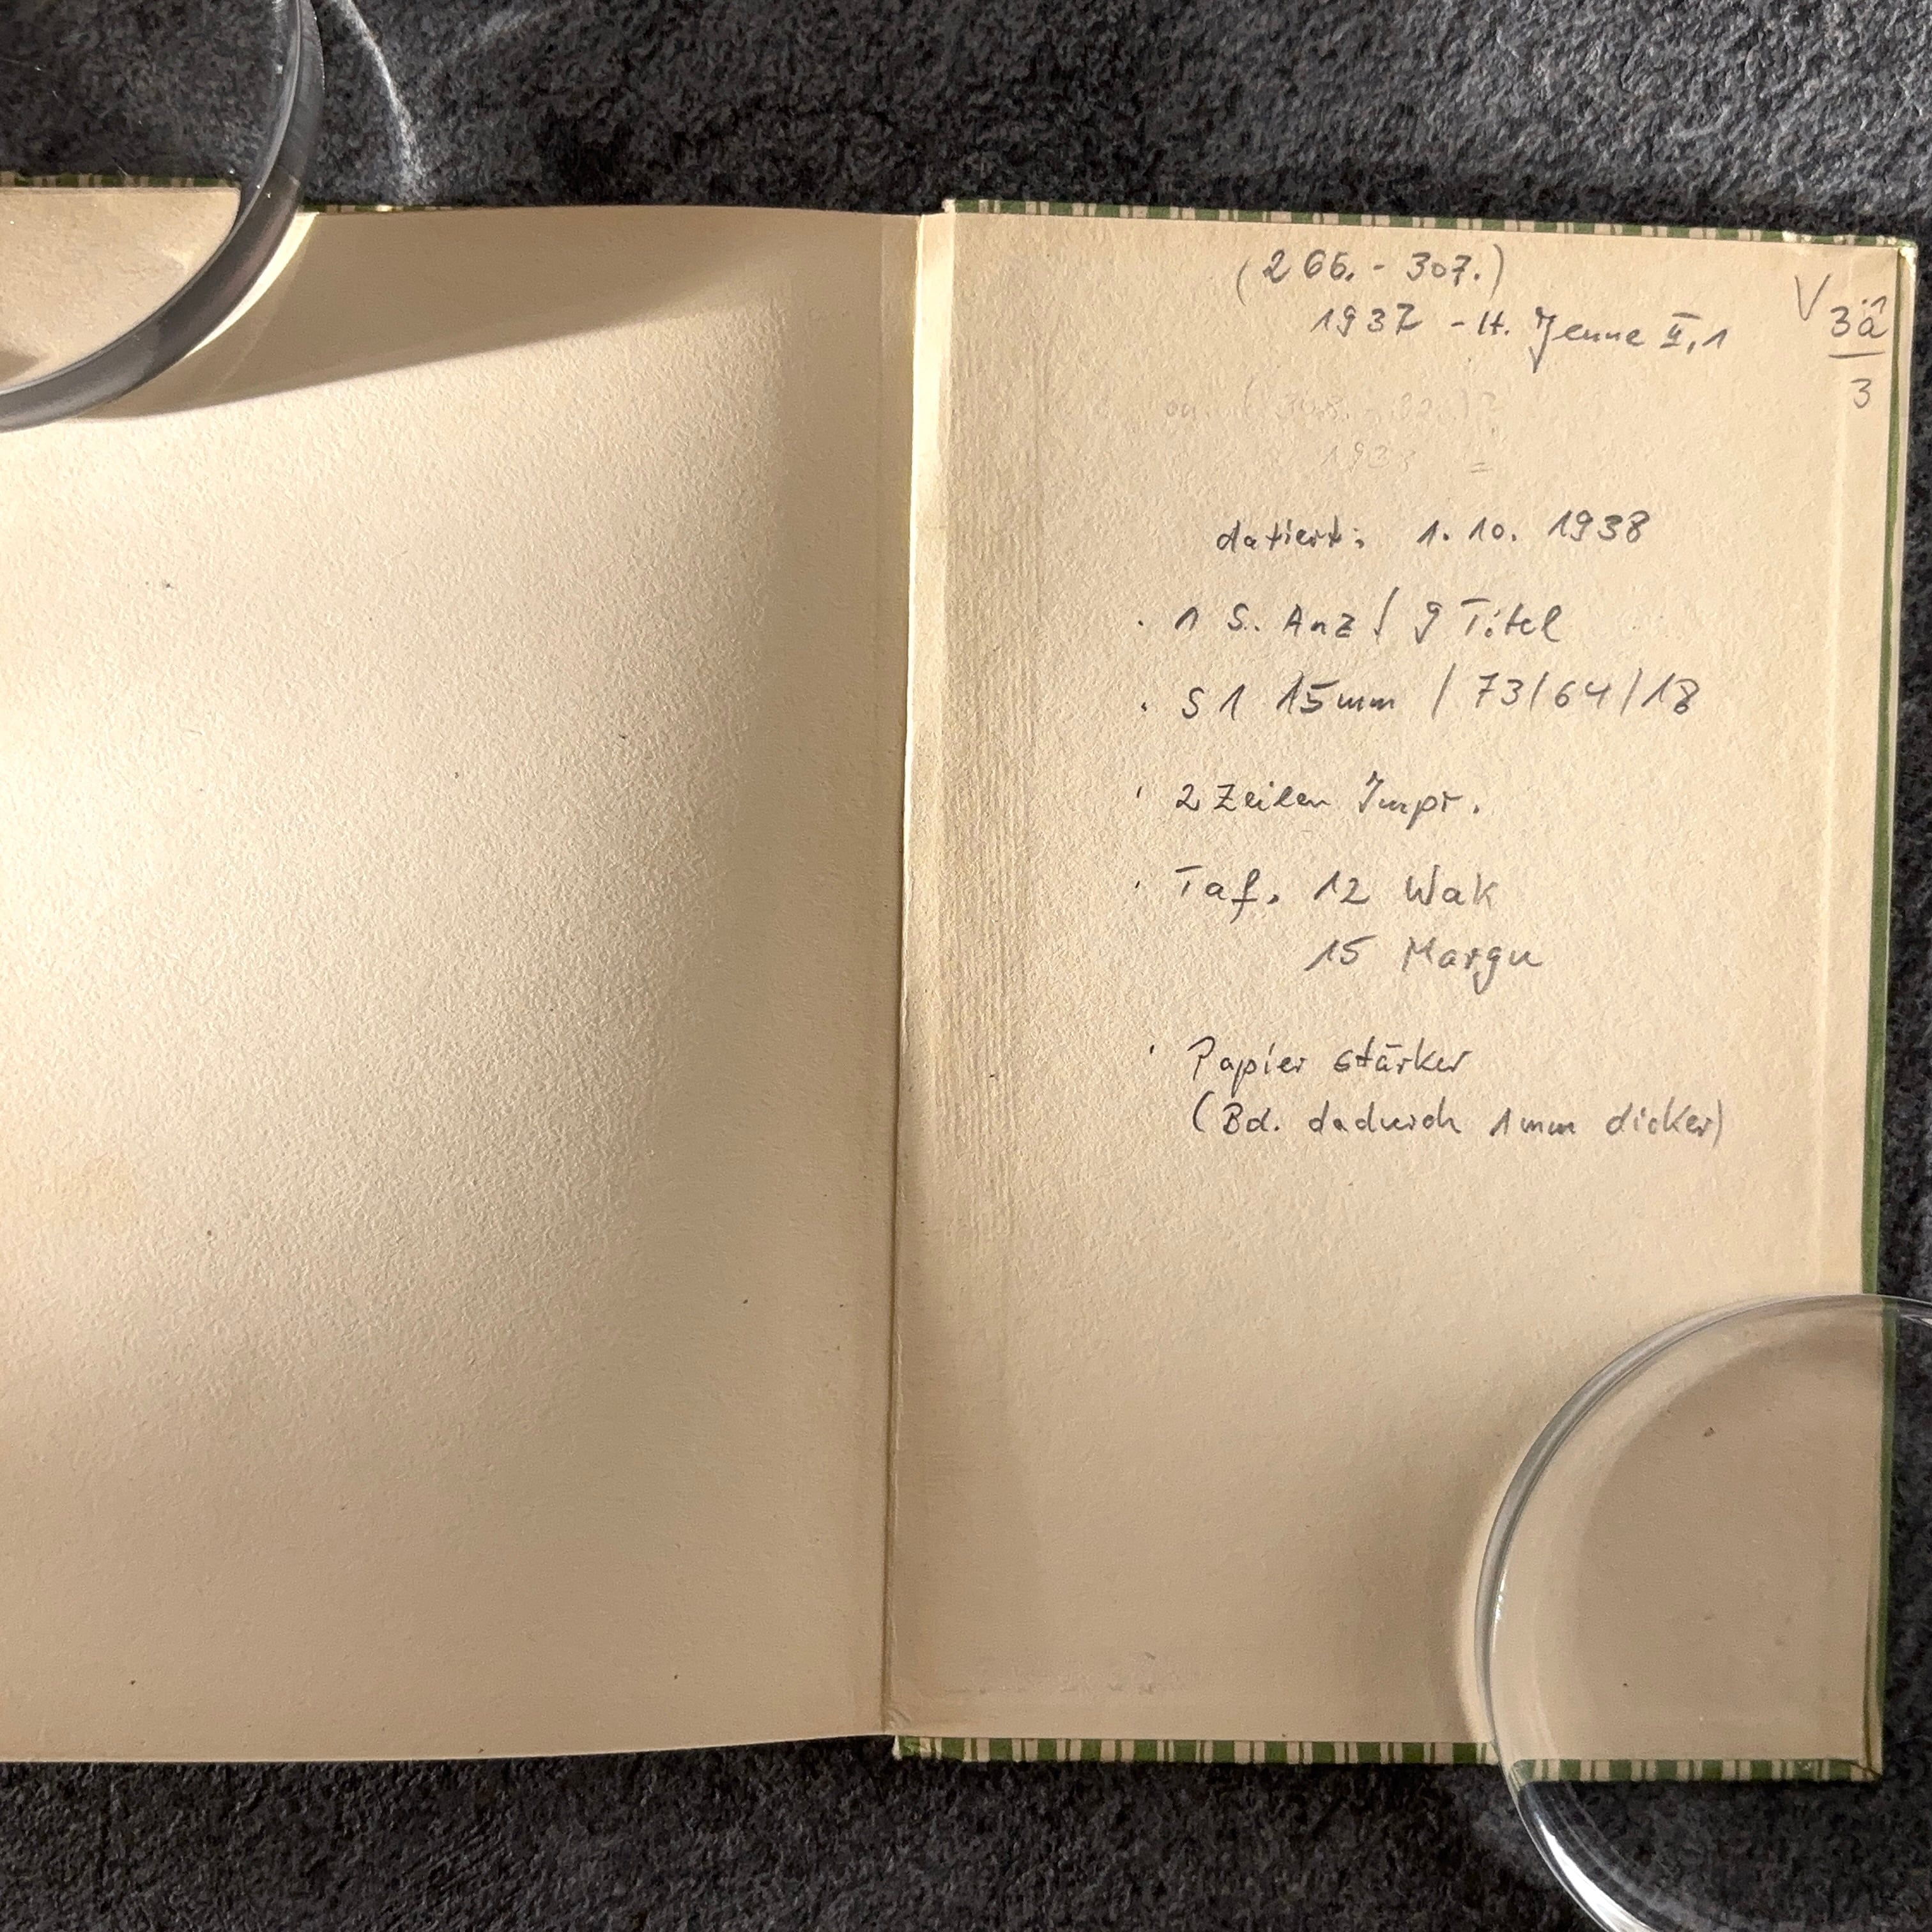 (266. - 307.)
1937 - H. Jenne II,1
V 3ä
3
datiert: 1. 10. 1938
· 1 S. Anz / 9 Titel
· S 1 15mm / 73/64/18
· 2 Zeilen Impr.
· Taf. 12 Wak
15 Margu
· Papier stärker
(Bd. dadurch 1mm dicker)